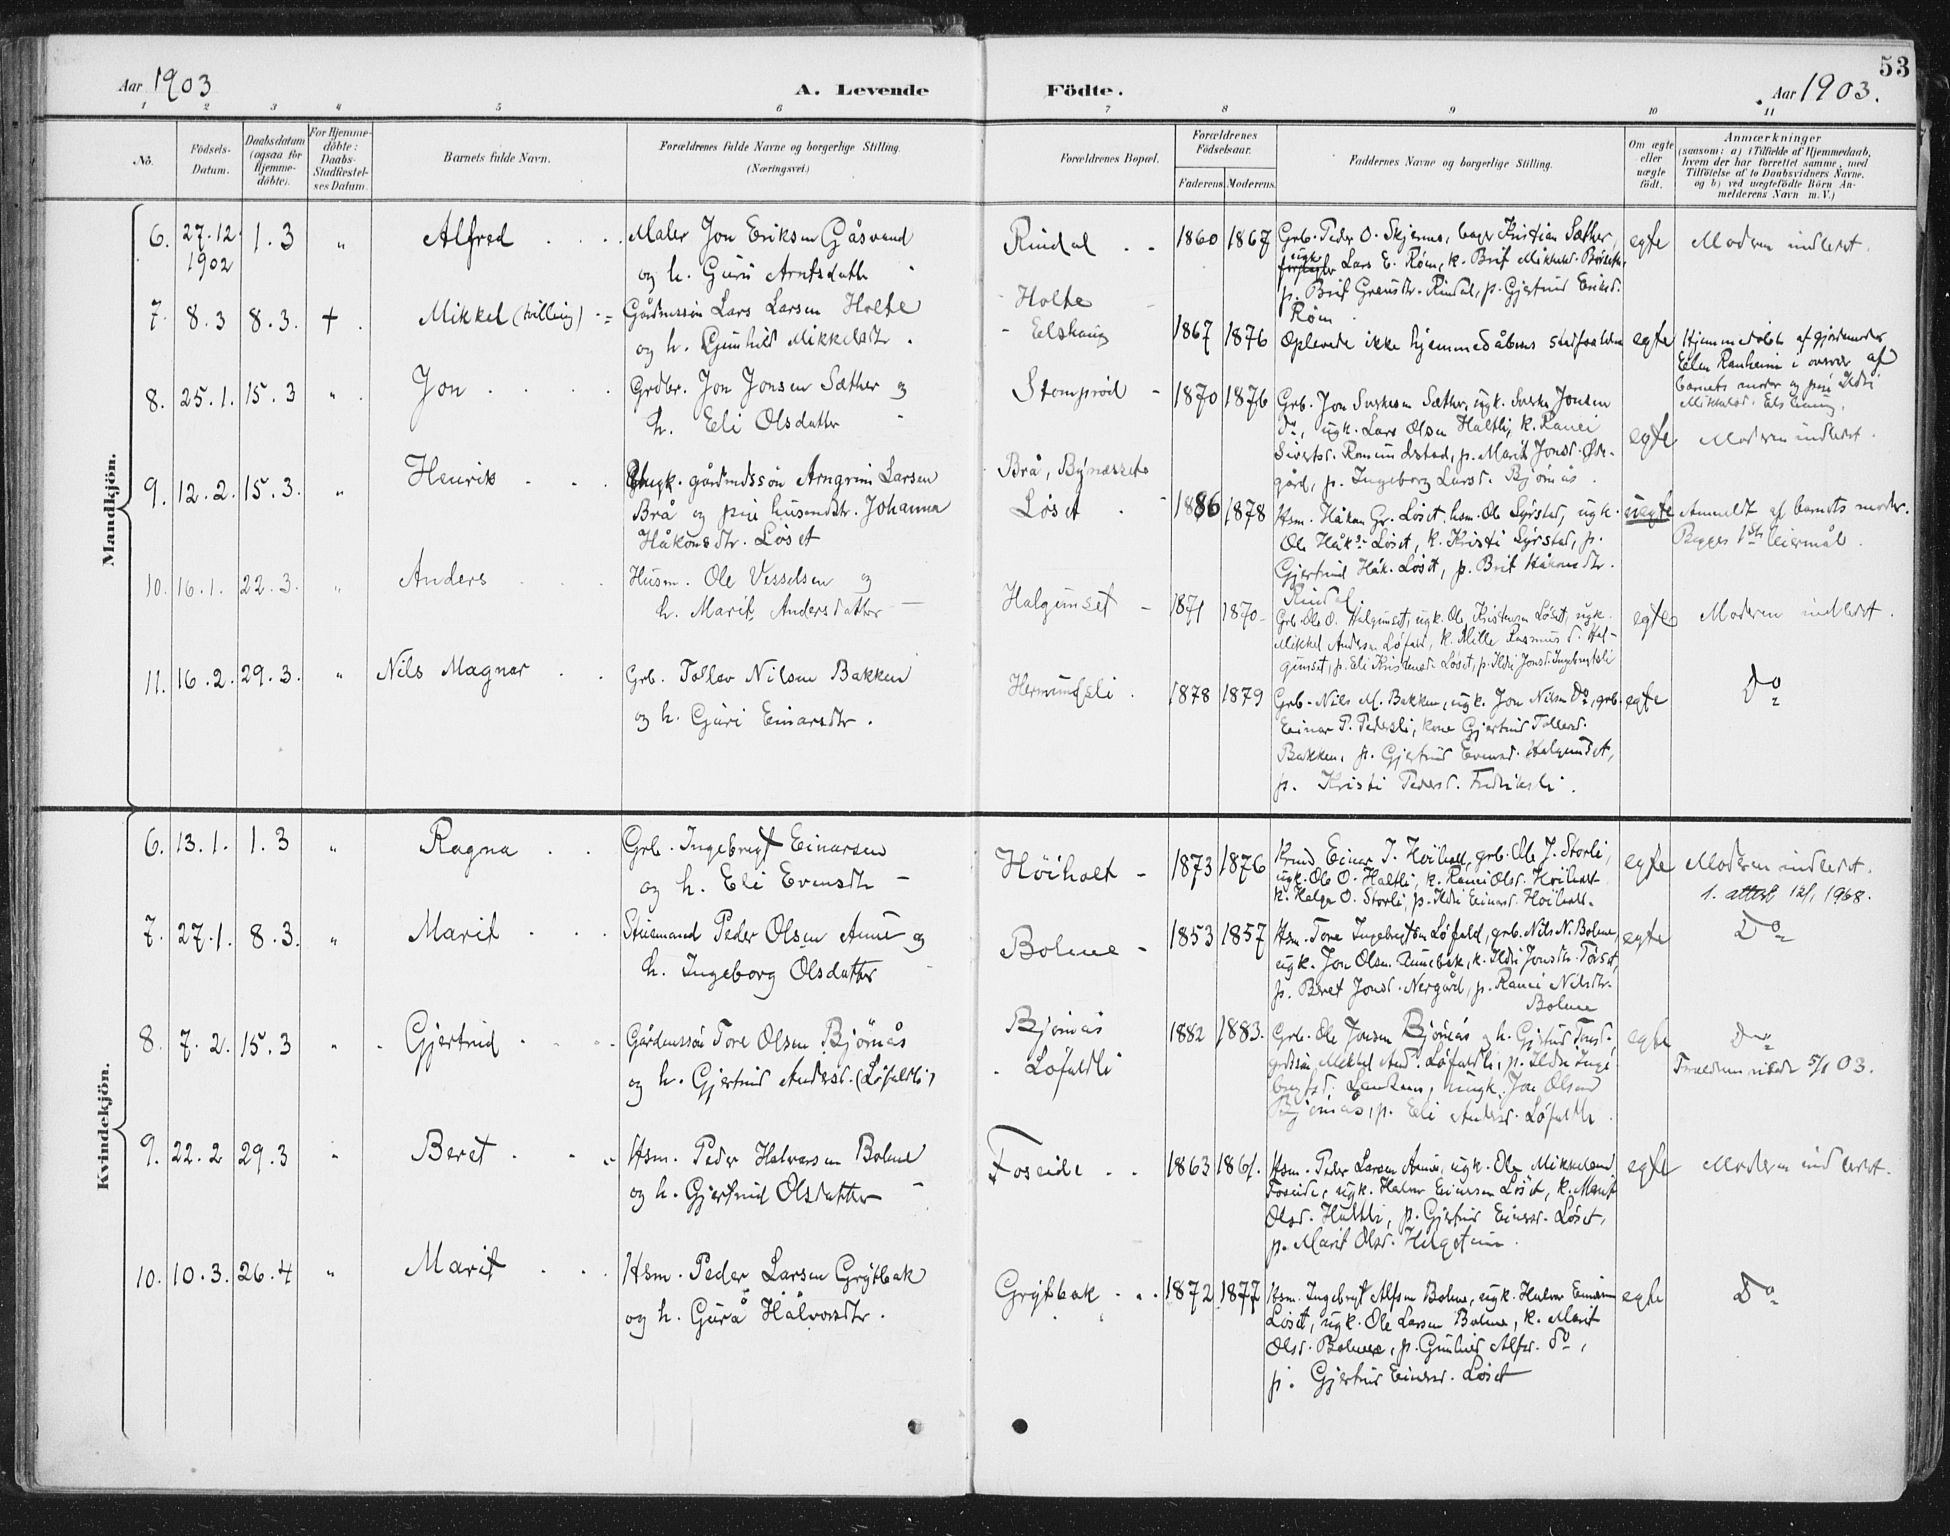 53
Aar 1903
A. Levende
Födte.
Aar 1903.
1 2 3 4 5 6 7 8 9 10 11
No.
Födsels-
Datum.
Daabsdatum
(ogsaa for
Hjemme-
döbte).
For Hjemme-
döbte:
Daabs-
Stadfæstel-
ses Datum.
Barnets fulde Navn.
Forældrenes fulde Navne og borgerlige Stilling.
(Næringsvei.)
Forældrenes Bopæl.
Forældrenes
Födselsaar.
Faderens. Moderens.
Faddernes Navne og borgerlige Stilling.
Om ægte
eller
uægte
födt.
Anmærkninger
(saasom: a) i Tilfælde af Hjemmedaab,
hvem der har forrettet samme, med
Tilföielse af to Daabsvidners Navne,
og b) ved uægtefödte Börn An-
melderens Navn m. V.)
Mandkjön.
6. 27.12 1902
1.3
"
Alfred
Maler Jon Eriksen Gåsvand
og h. Guri Arntsdatter
Rindal
1860 1867
Grb. Peder O. Skjermo, Kristian Sæther,
Lars E. Röen, k. Brit Mikkelsd.
p. Brit Rindal, p. Gjertrud Eriksd.
Röen
egte
Moderen indledet.
7. 8.3 8.3. +
Mikkel (tvilling)
Gårdmssön Lars Larsen Holte
og h. Gunhild Mikkelsdtr.
Holte
Elshaug
1867 1876
Oplevede ikke hjemmedåbens stadfæstelse
egte
Hjemmedöbt af gjordemoder
Ellen Ranheim i overvær af
barnets moder og pige Ildri
Mikkelsd. Elshaug.
8. 25.1. 15.3 "
Jon
Grdbr. Jon Jonsen Sæther og
h. Eli Olsdatter
Stomprød
1870 1876
Grb. Jon Sæther, ugk. Jonsen
Do, ugk. Lars Olsen Haltli, k. Ranei
Sivertsd. Romundstad, p. Marit Jonsd. Øde-
gård, p. Ingeborg Larsd. Bjørnås
egte
Moderen indledet.
9. 12.2. 15.3. "
Henrik
Ugk. gårdmdssön Arngrim Larsen
Brå og pige husmdsdtr. Johanna
Håkonsdtr. Löset
Brå, Bynæsset
Löset
1886 1878
Hsm. Håkon Gr. Löset, hsm. Ole Syrstad, ugk.
Ole Håks. Löset, k. Kristi Syrstad, p.
Gjertrud Håk. Löset, p. Brit Håkonsdtr.
Rindal.
uegte
Anmeldt af barnets moder.
Begges 1ste leiermål.
10. 16.1. 22.3. "
Anders
Husm. Ole Vesselsen og
h. Marit Andersdatter
Halgunset
1871 1870
Grb. Ole O. Halgunset, ugk. Ole Kristensen Löset, ugk.
Mikkel Andersen Löfald, k. Mille Rasmusd. Hal-
gunset, p. Eli Kristensd. Löset, p. Ildri Jonsd. Ingebrigtsli
egte
Moderen indledet.
11. 16.2. 29.3. "
Nils Magnar
Grb. Tollev Nilsen Bakken
og h. Guri Einarsdtr.
Hermundsli
1878 1879
Grb. Nils M. Bakken, ugk. Jon Nilsen Do, grb.
Einar P. Pedersli, kone Gjertrud Tollevsd.
Bakken, p. Gjertrud Evensd. Halgunset,
p. Kristi Pedersd. Fredriksli.
egte
Do
Kvindekjön.
6. 13.1. 1.3 "
Ragna
Grb. Ingebrigt Einarsen
og h. Eli Evensdtr
Höiholt
1873 1876
Einar I. Höiholt, grb. Ole J. Storli,
ugk. Ole O. Haltli, k. Ranei Olsd. Höiholt
k. Helga O. Storli, p. Ildri Einarsd. Höiholt.
egte
Moderen indledet.
1. attest 12/1 1968.
7. 27.1. 8.3. "
Marit
Stuemand Peder Olsen Aune og
h. Ingeborg Olsdatter
Bolme
1853 1857
Hsm. Tore Ingebrigtsen Löfald, grb. Nils N. Bolme,
ugk. Jon Olsen Aunebak, k. Ildri Jonsdtr. Töset,
p. Beret Jonsd. Nergård, p. Ranei Nilsdtr.
Bolme
egte
Do
8. 7.2. 15.3 "
Gjertrud
Gårdmssön Tore Olsen Bjørnås
og h. Gjertrud Andersd. (Löfaldli)
Bjørnås
Löfaldli
1882 1883.
Grb. Ole Jonsen Bjørnås og h. Gjertrud Toresd.,
Mikkel And. Löfaldli, p. Ildri Inge-
brigtsd. ungk. Jon Olsen
Bjørnås, p. Eli Andersd. Löfaldli
egte
Do
Forældrene viede 5/1 03.
9. 22.2 29.3 "
Beret
Hsm. Peder Halvorsen Bolme
og h. Gjertrud Olsdatter
Foseide
1863 1861.
Hsm. Peder Larsen Aune, ugk. Ole Mikkelsen
Foseide, ugk. Halvor Einersen Löset, k. Marit
Olsd. Haltli, p. Gjertrud Einersd. Löset,
p. Marit Olsd. Helgetun.
egte
Moderen indledet.
10. 10.3. 26.4 "
Marit
Hsm. Peder Larsen Grytbak
og h. Gurå Halvorsdtr.
Grytbak
1872 1877
Hsm. Ingebrigt Alfsen Bolme, ugk. Halvor Einersen
Löset, ugk. Ole Larsen Bolme, k. Marit
Olsd. Bolme, p. Gunhild Alfsd. Do,
p. Gjertrud Einersd. Löset
egte
Do